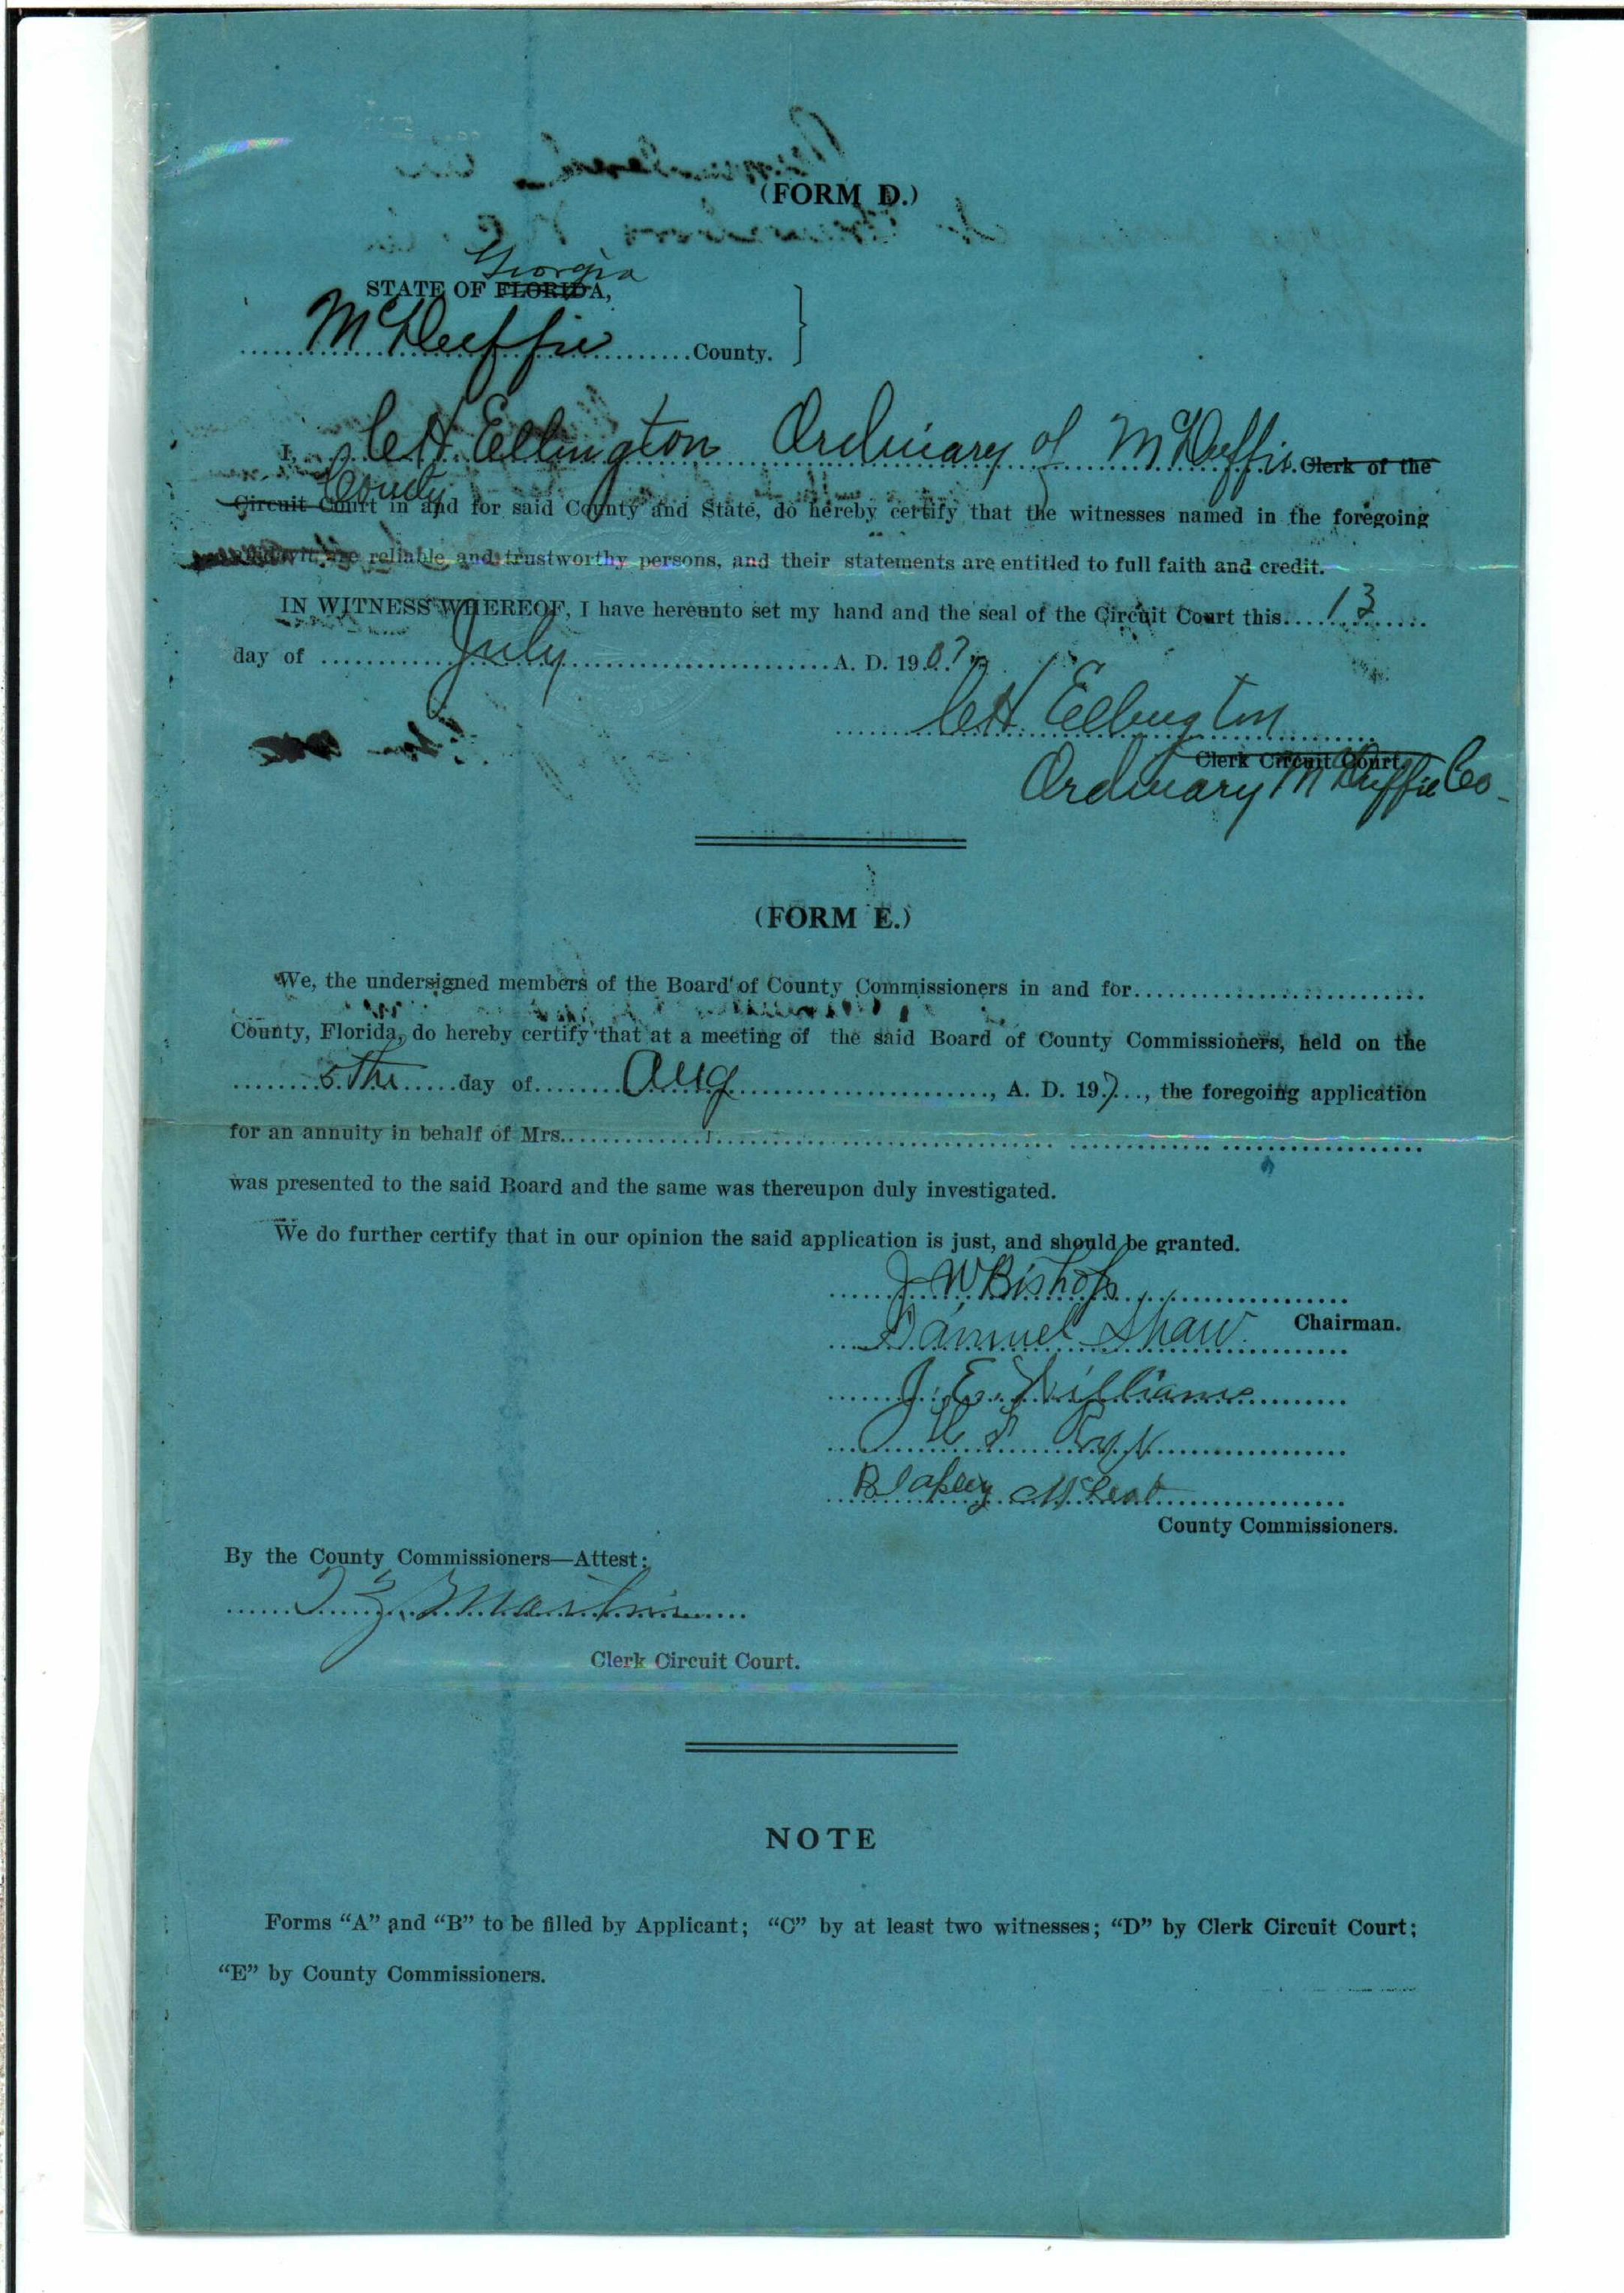 (FORM D.)
Georgia
STATE OF FLORIDA,
McDuffie County.
I, C H Ellington Ordinary of McDuffie Clerk of the
County
Circuit Court in and for said County and State, do hereby certify that the witnesses named in the foregoing
are reliable and trustworthy persons, and their statements are entitled to full faith and credit.
IN WITNESS WHEREOF, I have hereunto set my hand and the seal of the Circuit Court this 13
day of July A. D. 1907
C H Ellington
Clerk Circuit Court
Ordinary McDuffie Co
(FORM E.)
We, the undersigned members of the Board of County Commissioners in and for
County, Florida, do hereby certify that at a meeting of the said Board of County Commissioners, held on the
5th day of Aug, A. D. 197, the foregoing application
for an annuity in behalf of Mrs.
was presented to the said Board and the same was thereupon duly investigated.
We do further certify that in our opinion the said application is just, and should be granted.
J W Bishop
Chairman.
Samuel Shaw
J. E. Williams
McLeod
County Commissioners.
By the County Commissioners—Attest:
Martin
Clerk Circuit Court.
NOTE
Forms “A” and “B” to be filled by Applicant; “C” by at least two witnesses; “D” by Clerk Circuit Court;
“E” by County Commissioners.